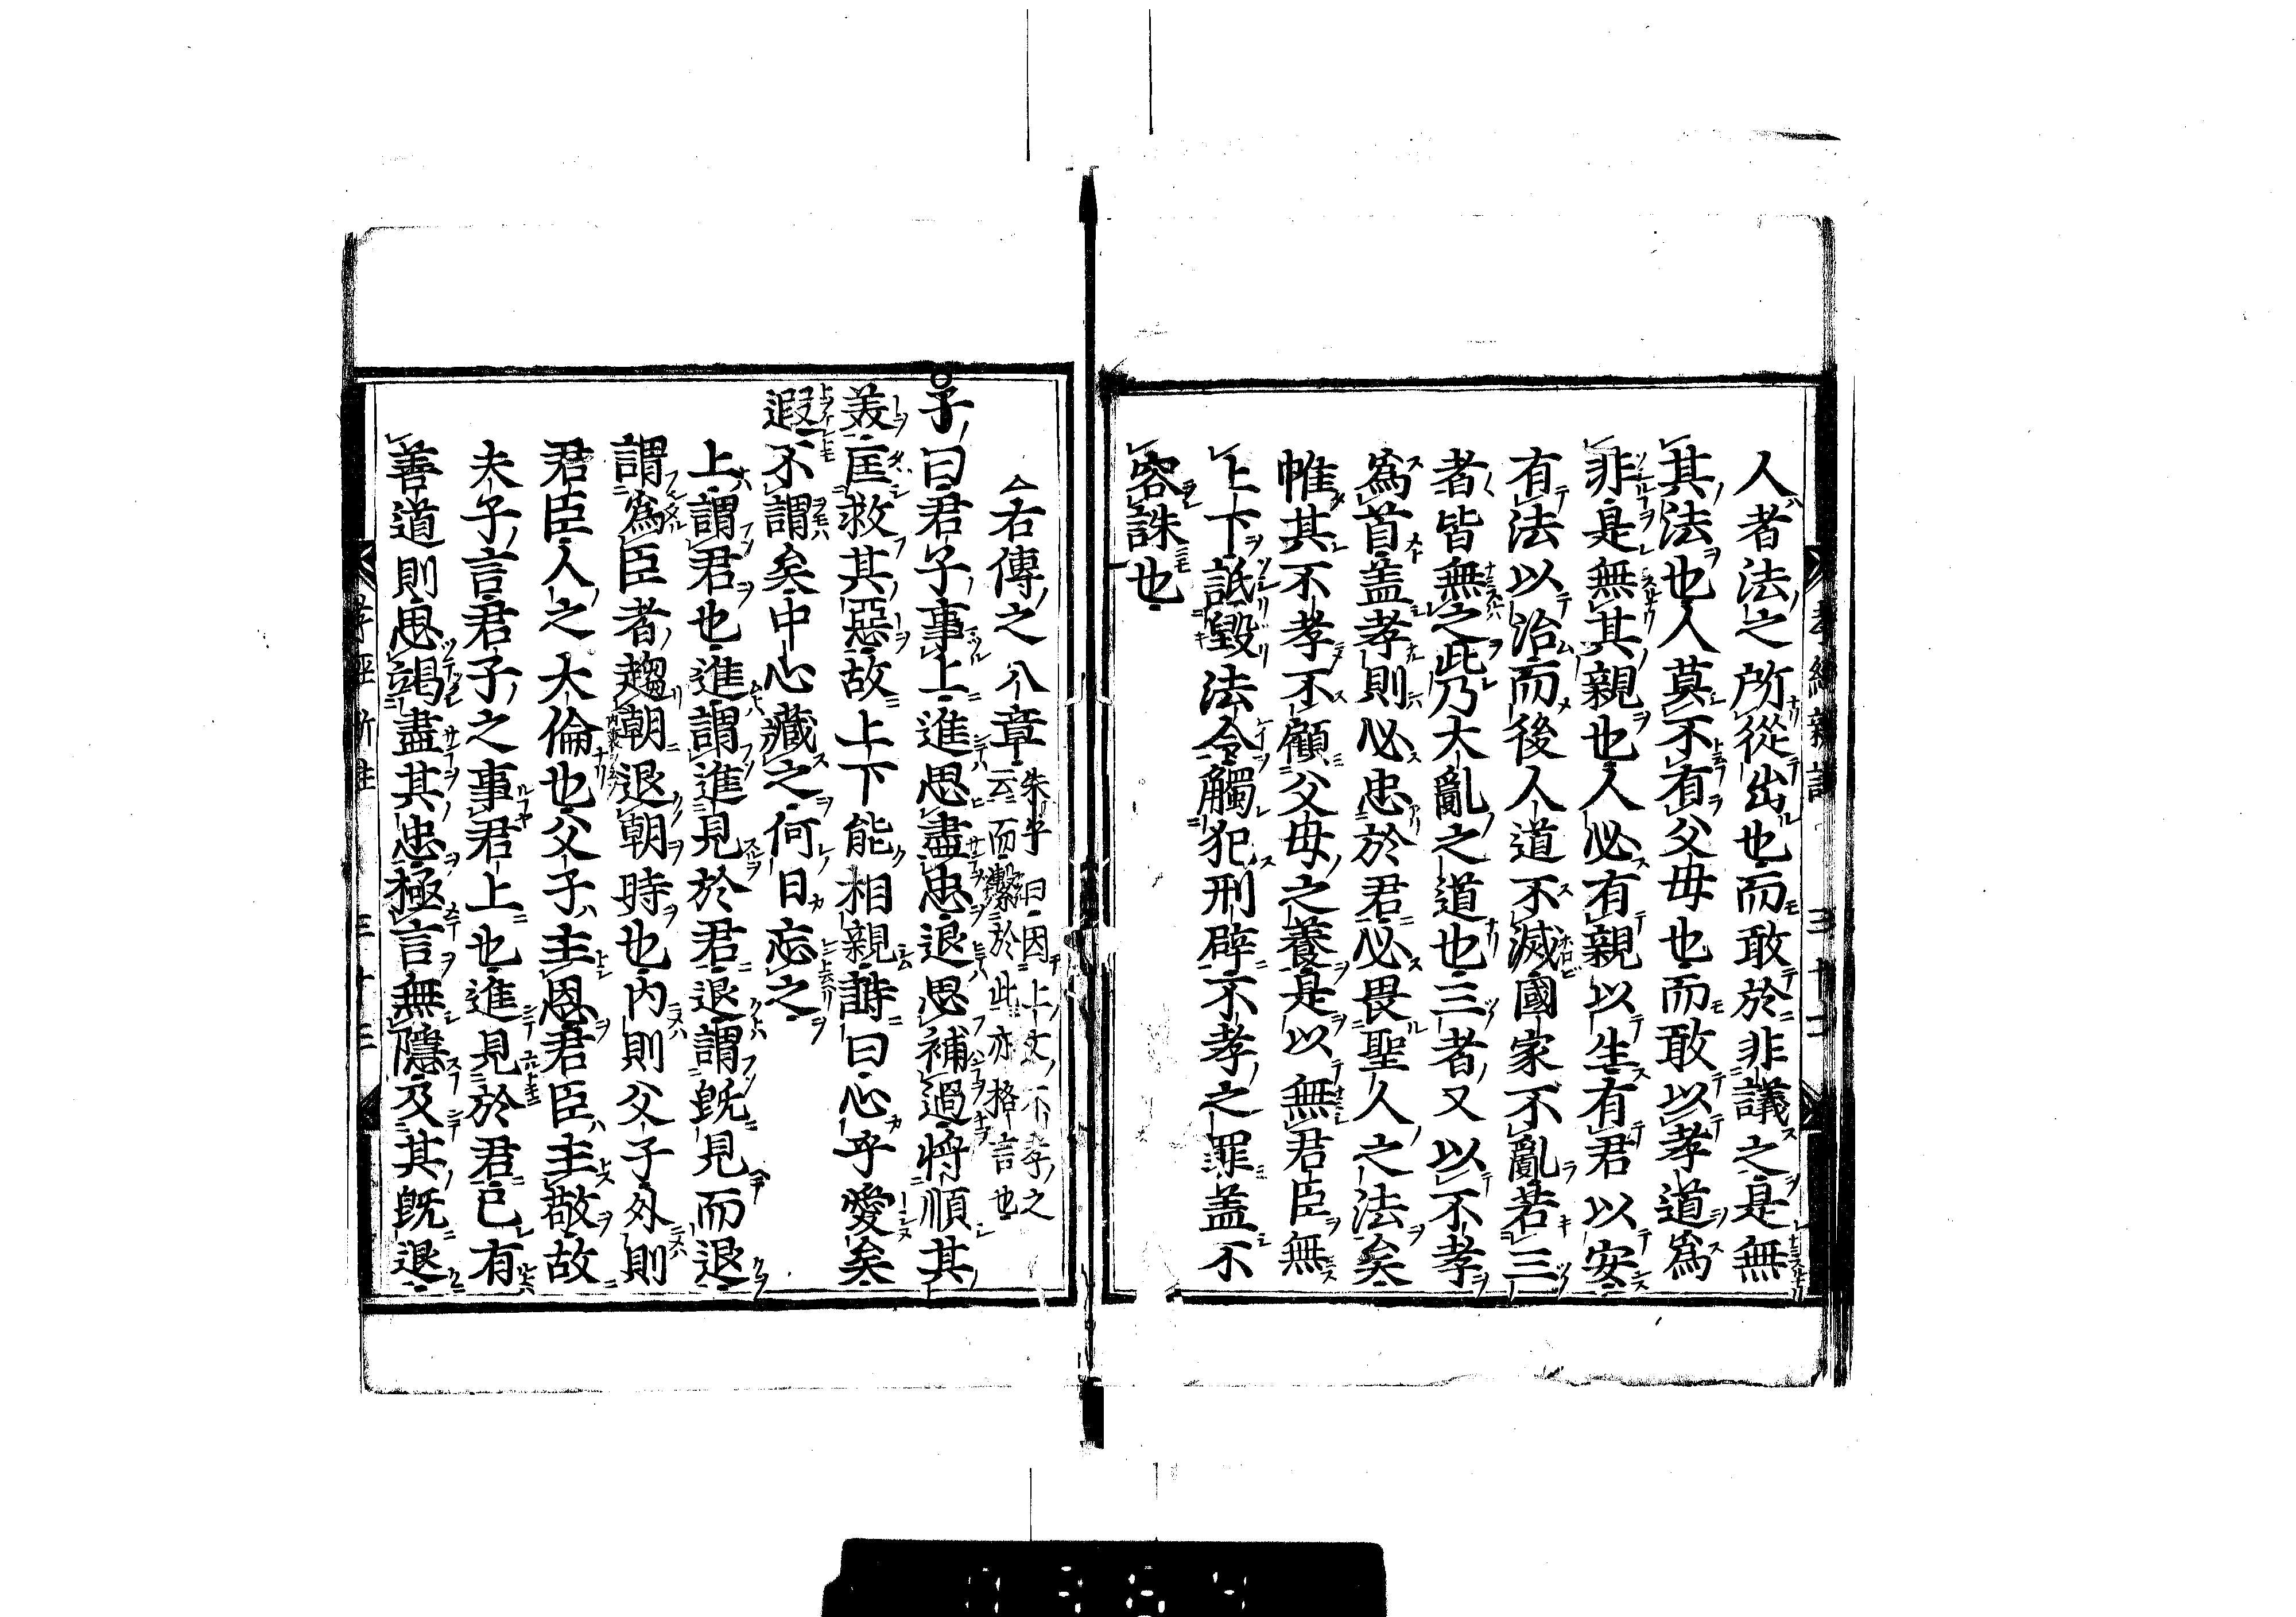 人者法之所從出也而敢於非議之是無
其法也人莫不有父毋也而敢以孝道爲
非是無其親也人必有親以生有君以安
有法以治而後人道不滅國家不亂若三
者皆無之此乃大亂之道也三者又以不孝
爲首盖孝則必忠於君必畏聖人之法矣
惟其不孝不顧父毋之養是以無君臣無
上下詆毀法令觸犯刑辟不孝之罪盖不
容誅也
右傳之八章朱子曰因上文不孝之
云而繫於此亦格言也
子曰君子事上進思盡忠退思補過將順其
美匡救其惡故上下能相親詩曰心乎愛矣
遐不謂矣中心藏之何日忘之
上謂君也進謂進見於君退謂既見而退
謂爲臣者趨朝退朝時也內則父子外則
君臣人之大倫也父子主恩君臣主敬故
夫子言君子之事君上也進見於君已有
善道則思竭盡其忠極言無隱及其既退